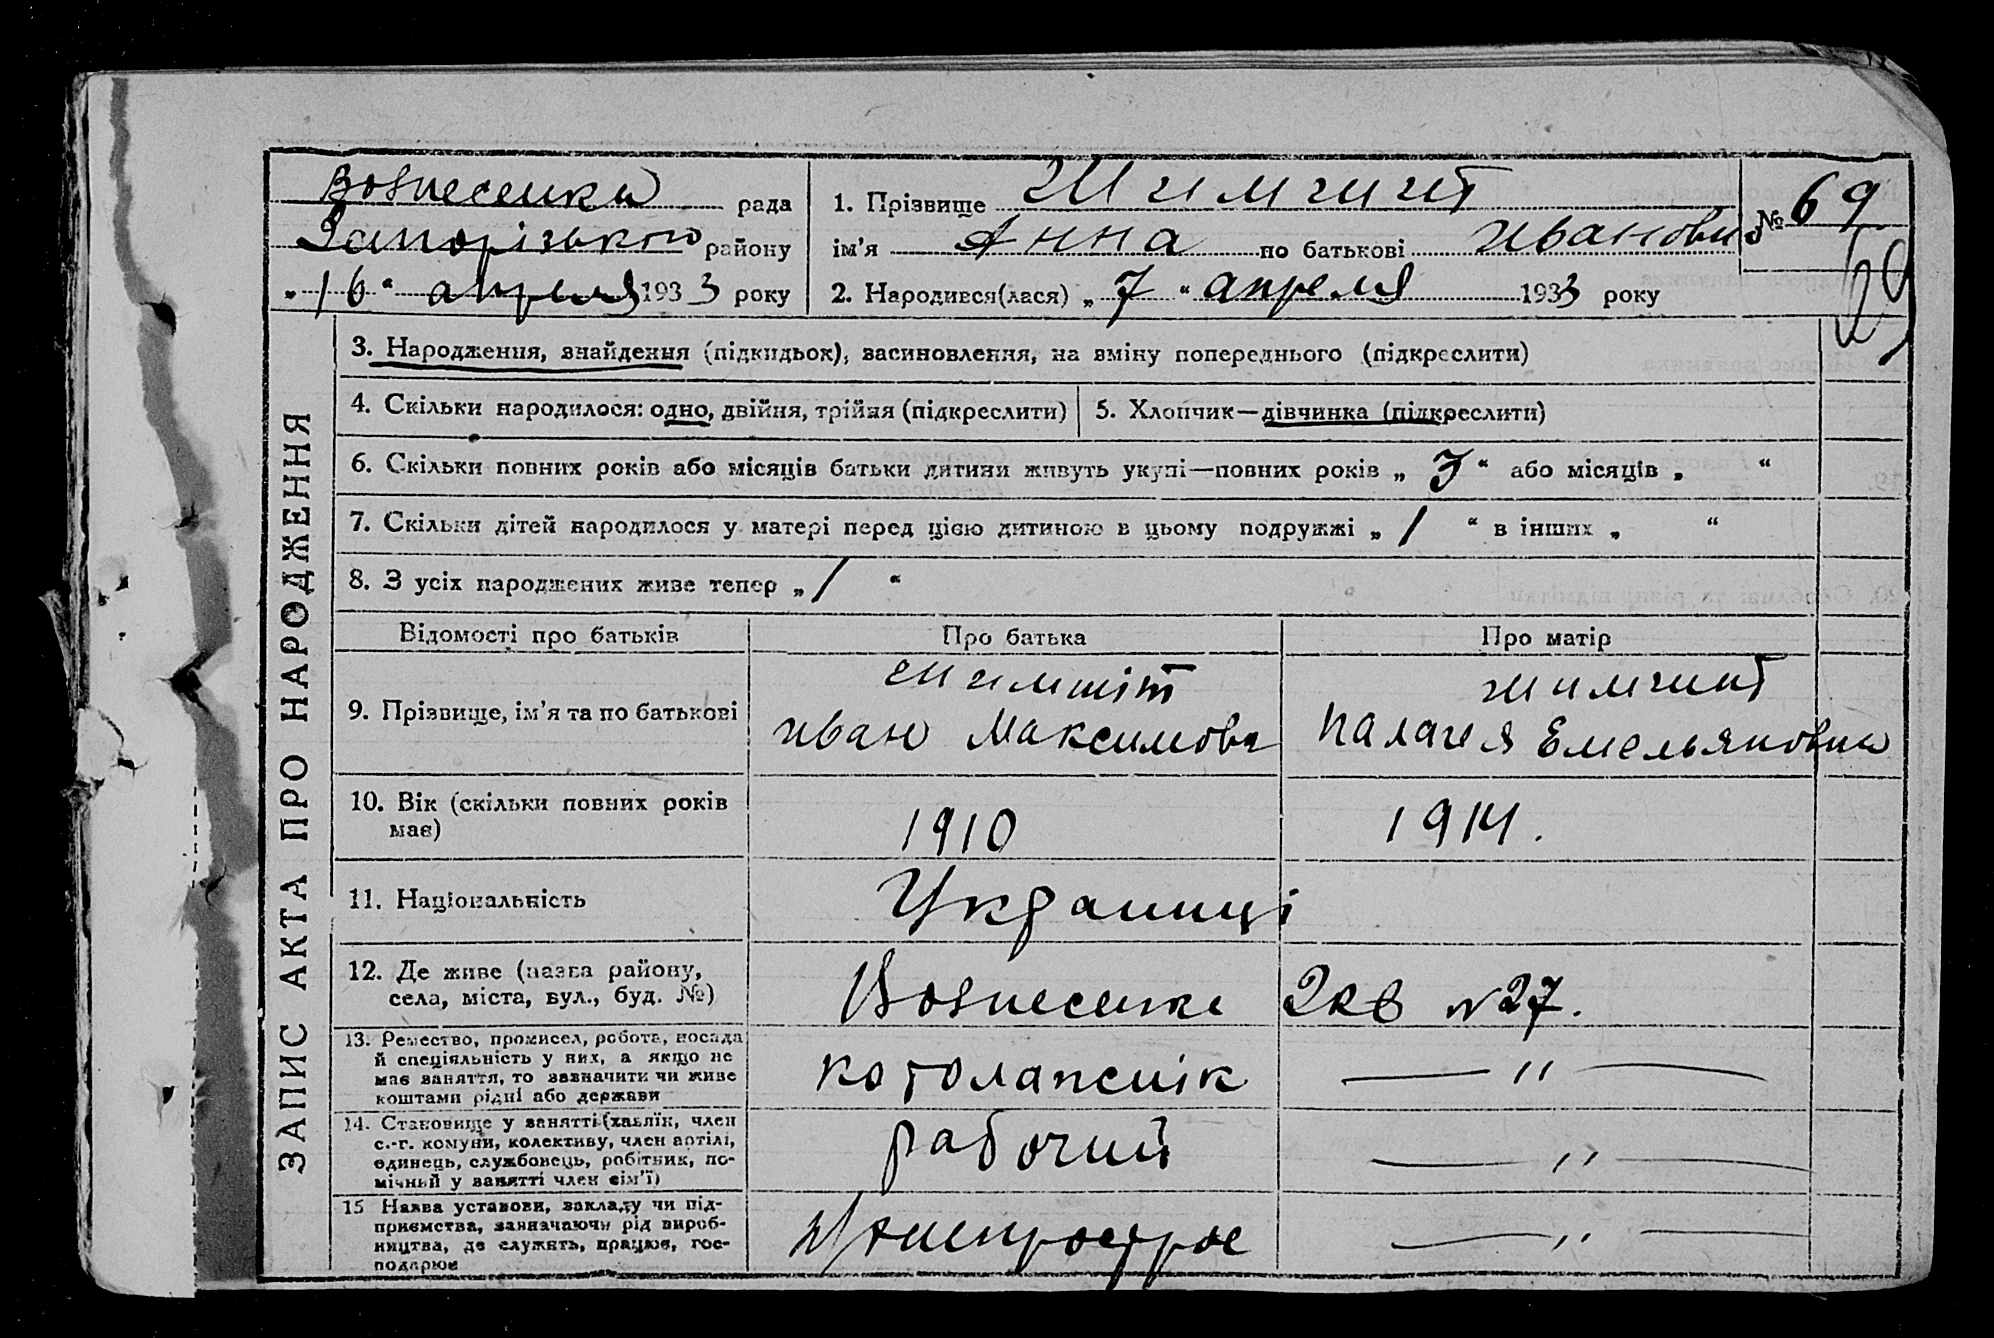 Вознесенки рада
Запорізького району
„16“ апреля 1933 року
1. Прізвище Шимшит
ім’я Анна по батькові Ивановн
2. Народився(лася) „7“ апреля 1933 року
№ 69
ЗАПИС АКТА ПРО НАРОДЖЕННЯ
3. Народження, знайдення (підкидьок), засиновлення, на зміну попереднього (підкреслити)
4. Скільки народилося: одно, двійня, трійня (підкреслити)
5. Хлопчик—дівчинка (підкреслити)
6. Скільки повних років або місяців батьки дитини живуть укупі—повних років „3“ або місяців „ “
7. Скільки дітей народилося у матері перед цією дитиною в цьому подружжі „1“ в інших „ “
8. З усіх народжених живе тепер „1“
Відомості про батьків Про батька Про матір
9. Прізвище, ім’я та по батькові
Шимшіт
Иван Максимови
Шимшит
Палагея Емельяновна
10. Вік (скільки повних років
має)
1910
1914.
11. Національність
Украинці
12. Де живе (назва району,
села, міста, вул., буд. №)
Вознесенке 2 кв №27.
13. Ремество, промисел, робота, посада
й спеціяльність у них, а якщо не
має заняття, то зазначити чи живе
коштами рідні або держави
— " —
14. Становище у занятті (хазяїн, член
с.-г. комуни, колективу, член артілі,
одинець, службовець, робітник, по-
мічний у занятті член сім’ї)
рабочий
— " —
15 Назва установи, закладу чи під-
приємства, зазначаючи рід вироб-
ництва, де служить, працює, гос-
подарює
Днепрострое
— " —